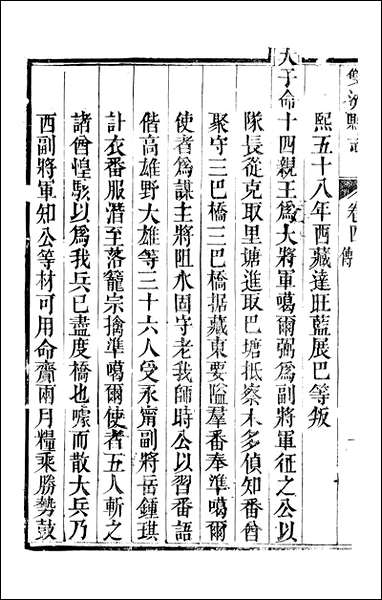 雙流縣志
卷四 傳
熙五十八年西藏達旺藍展巴等叛
天子命十四親王爲大將軍噶爾弼爲副將軍征之公以
隊長從克取里塘進取巴塘抵察木多偵知番酋
聚守三巴橋三巴橋據藏東要隘羣番奉準噶爾
使者爲謀主將阻水固守老我師時公以習番語
偕高雄野大雄等三十六人受永甯副將岳鍾琪
計衣番服潛至落籠宗擒準噶爾使者五人斬之
諸酋惶駭以爲我兵已盡度橋也噱而散大兵乃
西副將軍知公等材可用命齎兩月糧乘勝勢鼓